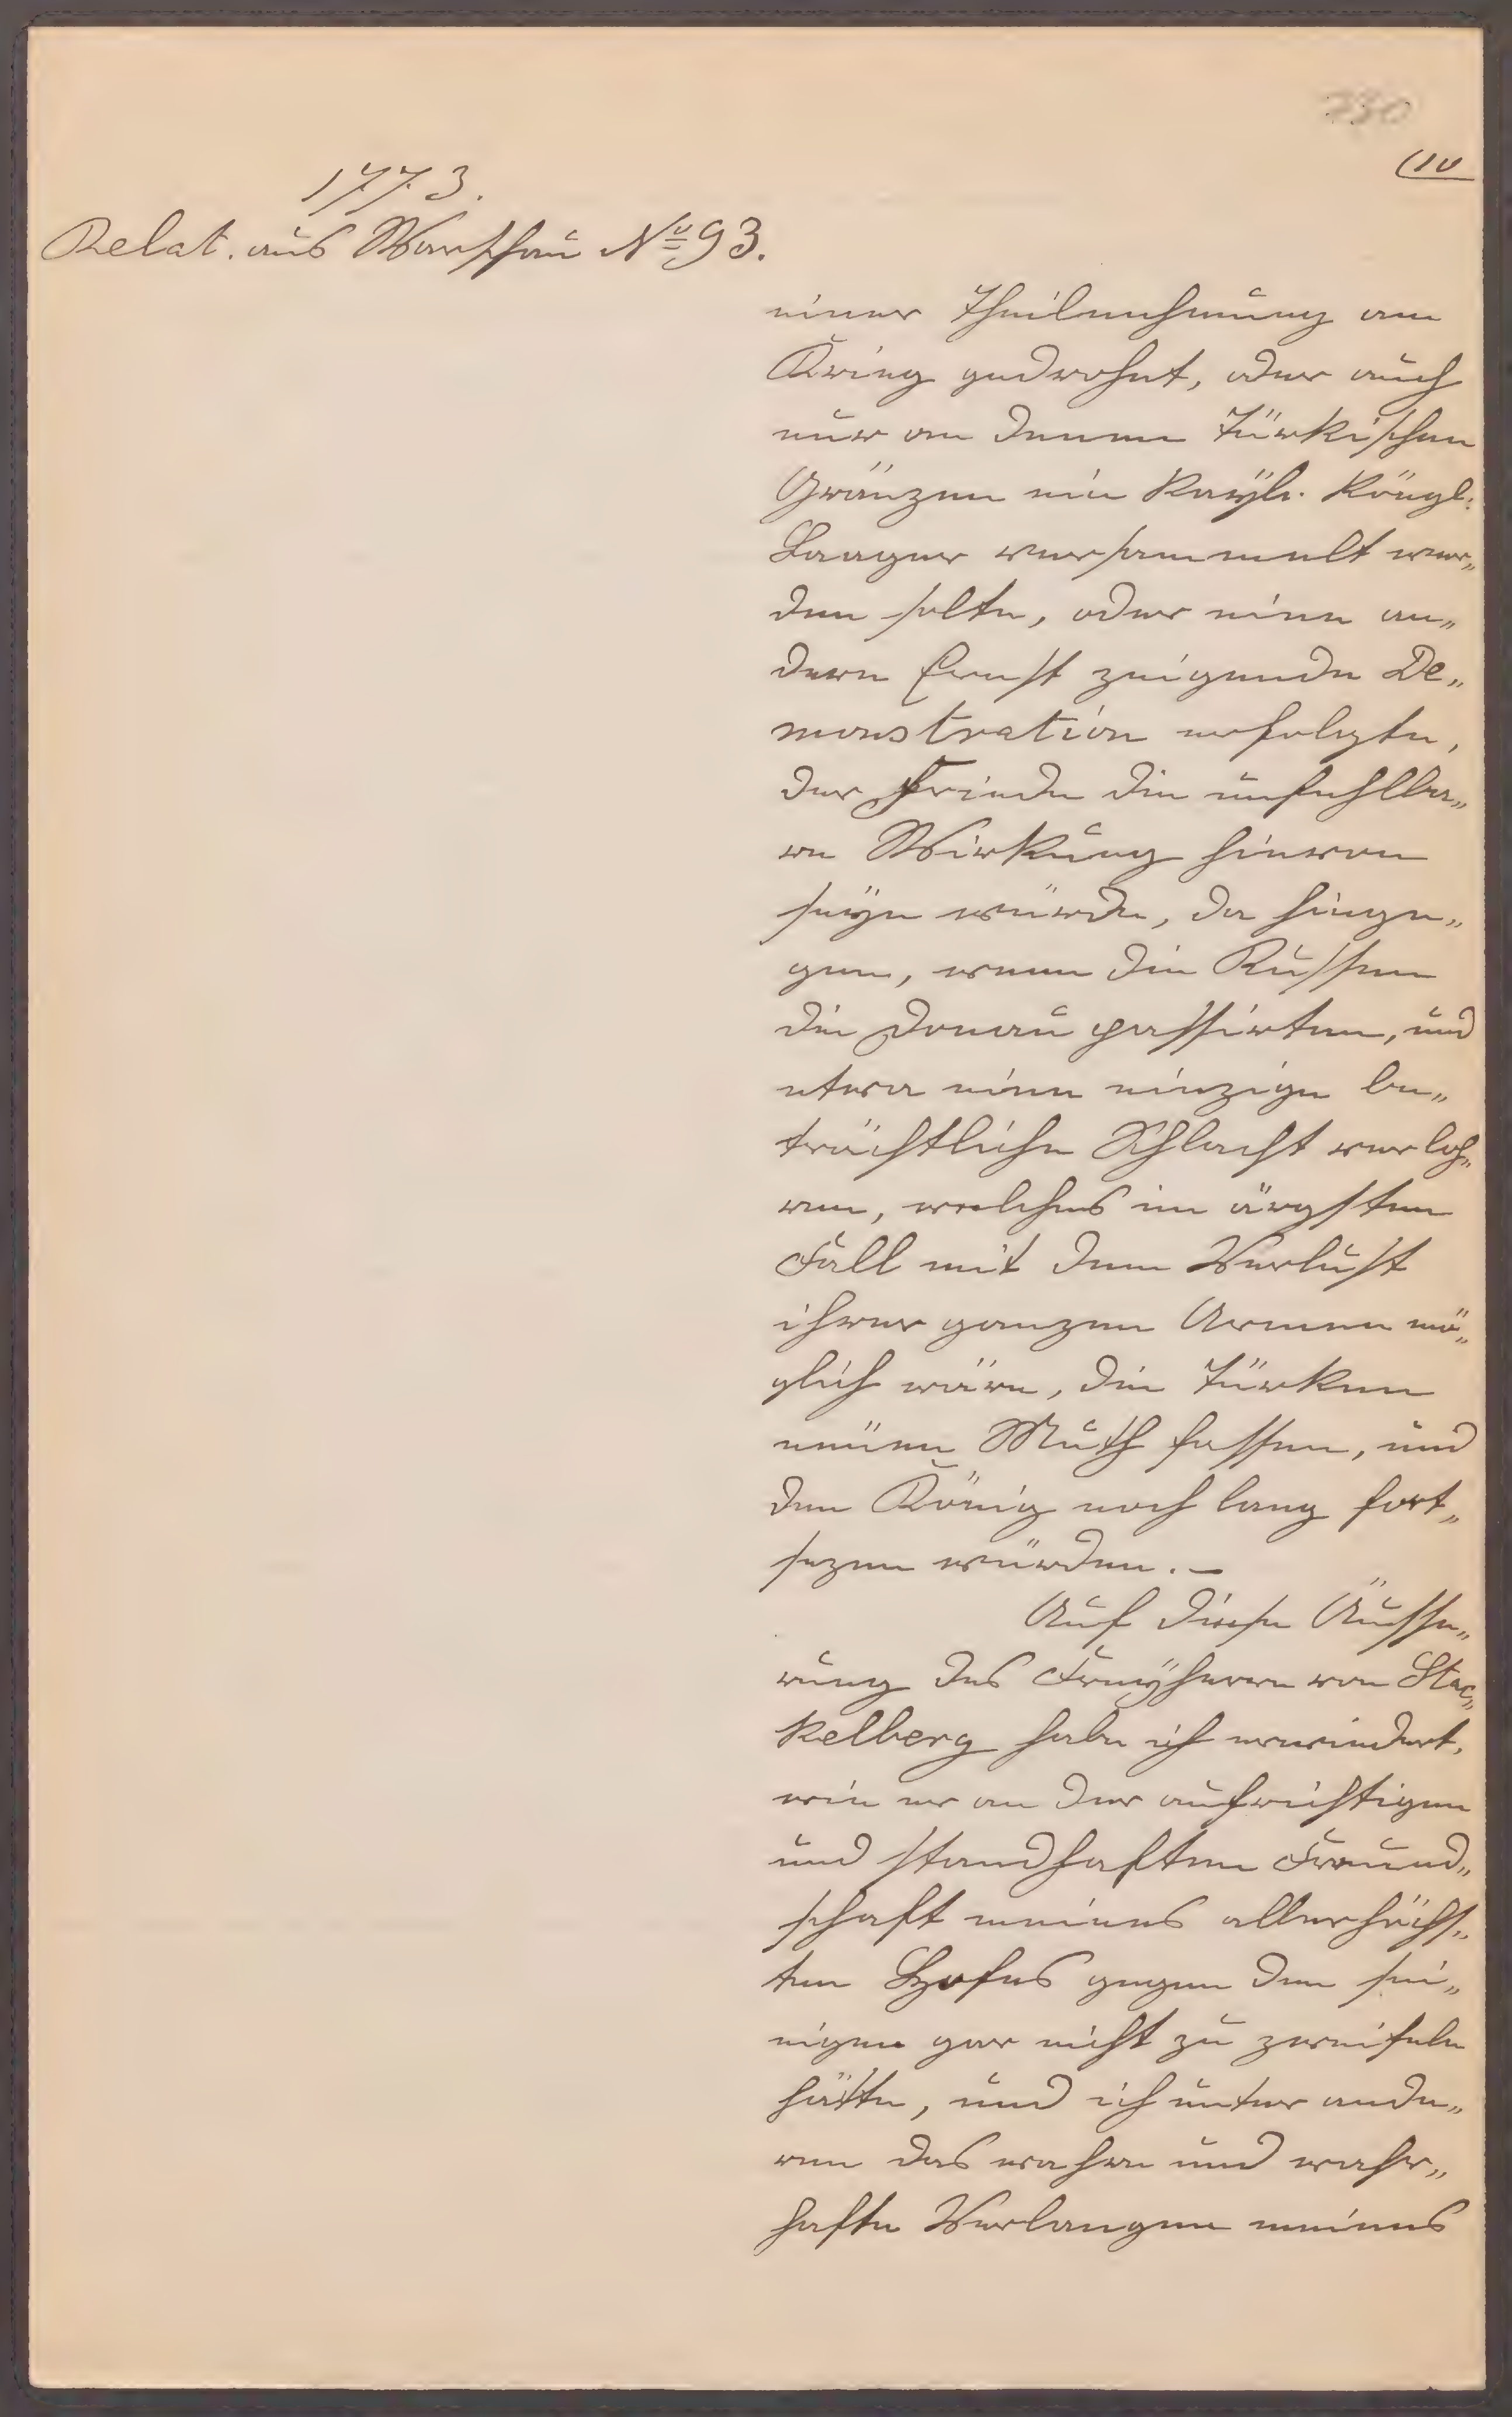 730
(10
1773.
Relat. aus Warschau No 93.
einer Theilnehmung am
Krieg gedrohet, oder auch
nur an denen Türkischen
Gränzen ein Kaÿl. Köngl.
Laager versammelt wer„
den solte, oder eine an„
dern Ernst zeigende De„
monstration erfolgte,
der Friede die unfehlba„
re Wirkung hievon
seÿn würde, da hinge„
gen, wenn die Russen
die Donau passirten, und
etwa eine einzige be„
trächtliche Schlacht verloh„
ren, welches im ärgsten
Fall mit dem Verlust
ihrer ganzen Armee mö„
glich wäre, die Türken
neuen Muth fassen, und
den König noch lang fort„
sezen würden. –
Auf diese Äusse„
rung des Freÿherrn von Stac„
kelberg habe ich erwiedert,
wie er an der aufrichtigen
und standhaften Freund„
schaft meines allerhöchs„
ten Hofes gegen den sei„
nigen gar nicht zu zweifeln
hätte, und ich unter ande„
ren das wahre und wahr„
hafte Verlangen meines